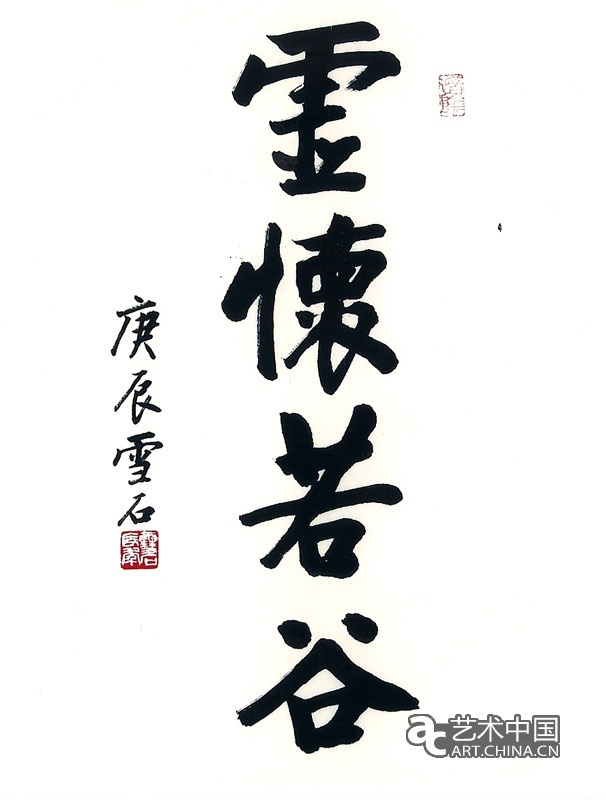 虛懷若谷
庚辰雪石
艺术中国
ART.CHINA.CN